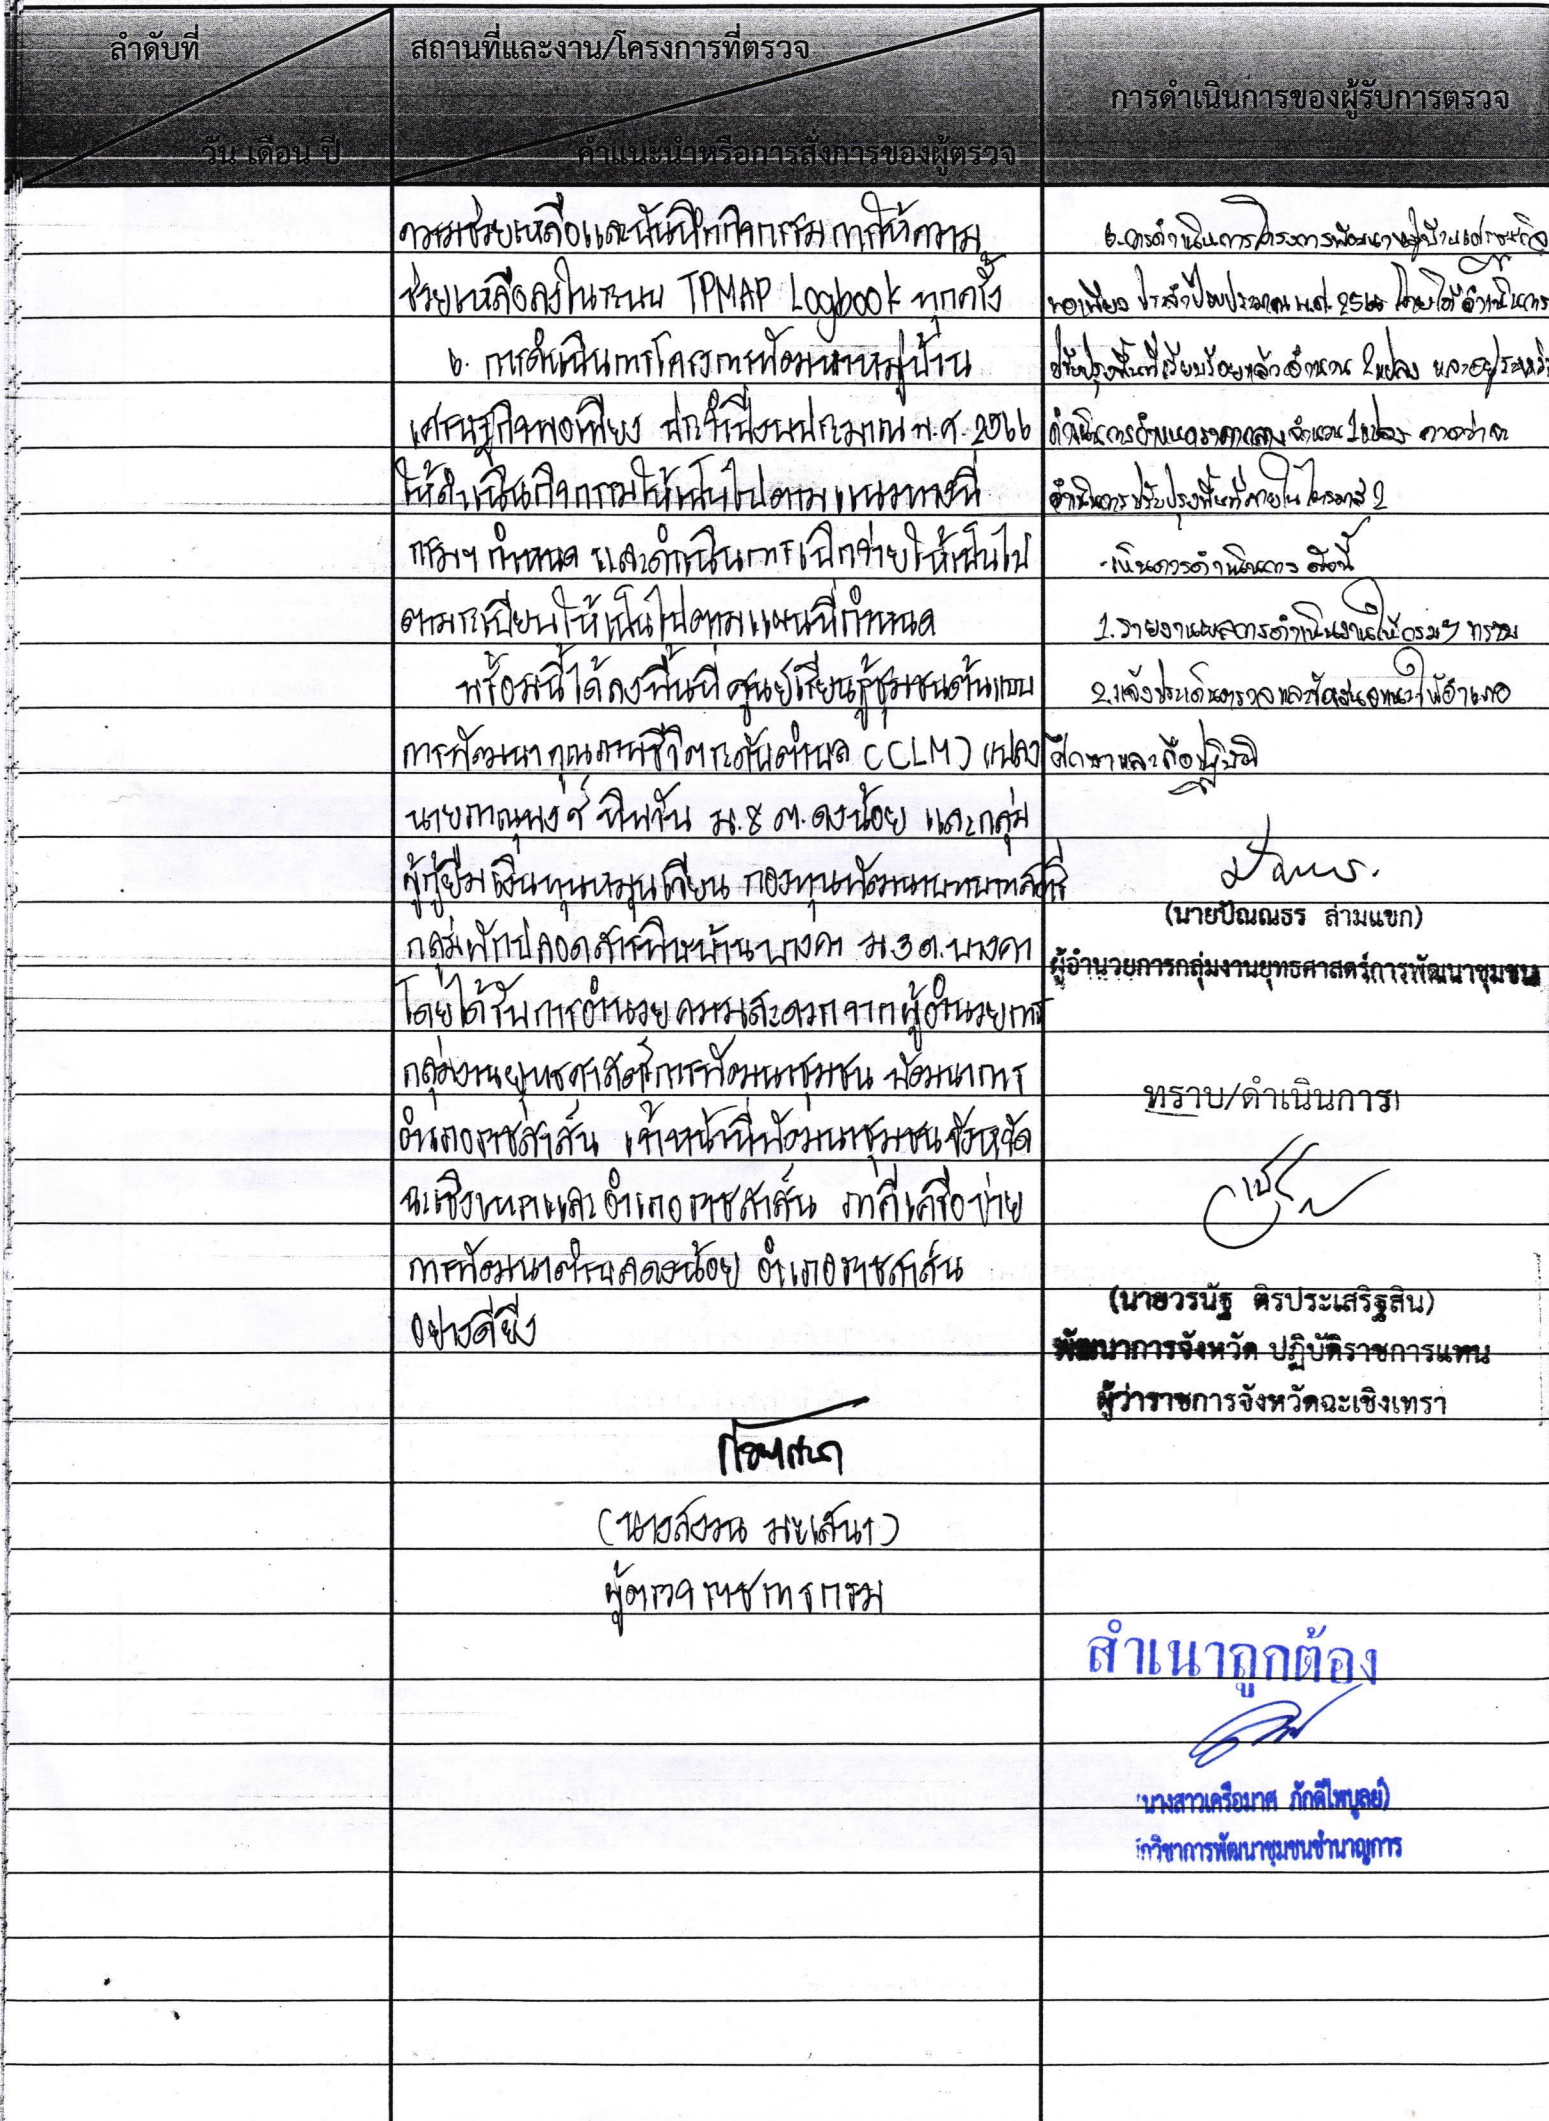 ลำดับที่
วัน เดือน ปี
สถานที่และงาน/โครงการที่ตรวจ
คำแนะนำหรือการสั่งการของผู้ตรวจ
การดำเนินการของผู้รับการตรวจ
ความช่วยเหลือและบันทึกกิจกรรมการให้ความ
ช่วยเหลือลงในระบบ TPMAP Logbook ทุกครั้ง
๖. การดำเนินการโครงการพัฒนาหมู่บ้าน
เศรษฐกิจพอเพียง ประจำปีงบประมาณ พ.ศ. 2566
ให้ดำเนินกิจกรรมให้เป็นไปตามแนวทางที่
กรมฯ กำหนด และดำเนินการเบิกจ่ายให้เป็นไป
ตามระเบียบให้เป็นไปตามแผนที่กำหนด
พร้อมนี้ได้ลงพื้นที่ ศูนย์เรียนรู้ชุมชนต้นแบบ
การพัฒนาคุณภาพชีวิตระดับตำบล (CLM) แปลง
นายภาณุพงศ์ ม.8 ต.ดงน้อย และกลุ่ม
ผู้กู้ยืมเงินทุนหมุนเวียน กองทุนพัฒนาบทบาทสตรี
กลุ่มผักปลอดสารพิษบ้านบางคา ม.3 ต.บางคา
โดยได้รับการอำนวยความสะดวกจากผู้อำนวยการ
กลุ่มงานยุทธศาสตร์การพัฒนาชุมชน พัฒนาการ
อำเภอราชสาส์น เจ้าหน้าที่พัฒนาชุมชนจังหวัด
ฉะเชิงเทราและอำเภอราชสาส์น ภาคีเครือข่าย
การพัฒนาตำบลดงน้อย อำเภอราชสาส์น
อย่างดียิ่ง
(นายสงวน มะเส้นา)
ผู้ตรวจราชการกรม
6. การดำเนินการโครงการพัฒนาหมู่บ้านเศรษฐกิจ
พอเพียง ประจำปีงบประมาณ พ.ศ. 2566 โดยได้ดำเนินการ
ปรับปรุงพื้นที่เรียบร้อยแล้วจำนวน 2 แปลง และอยู่ระหว่าง
ดำเนินการกำหนดราคากลาง จำนวน 1 แปลง คาดว่าจะ
ดำเนินการปรับปรุงพื้นที่ภายใน ไตรมาส 2
- เห็นควรดำเนินการ ดังนี้
1. รายงานผลการดำเนินงานให้กรมฯ ทราบ
2. แจ้งประเด็นตรวจและข้อเสนอแนะให้อำเภอ
ศึกษาและถือปฏิบัติ
(นายปัณณธร ล่ามแขก)
ผู้อำนวยการกลุ่มงานยุทธศาสตร์การพัฒนาชุมชน
ทราบ/ดำเนินการ
(นายวรนัฐ ศิรประเสริฐสิน)
พัฒนาการจังหวัด ปฏิบัติราชการแทน
ผู้ว่าราชการจังหวัดฉะเชิงเทรา
สำเนาถูกต้อง
นางสาวเครือมาศ ภักดีไพบูลย์)
กวิชาการพัฒนาชุมชนชำนาญการ